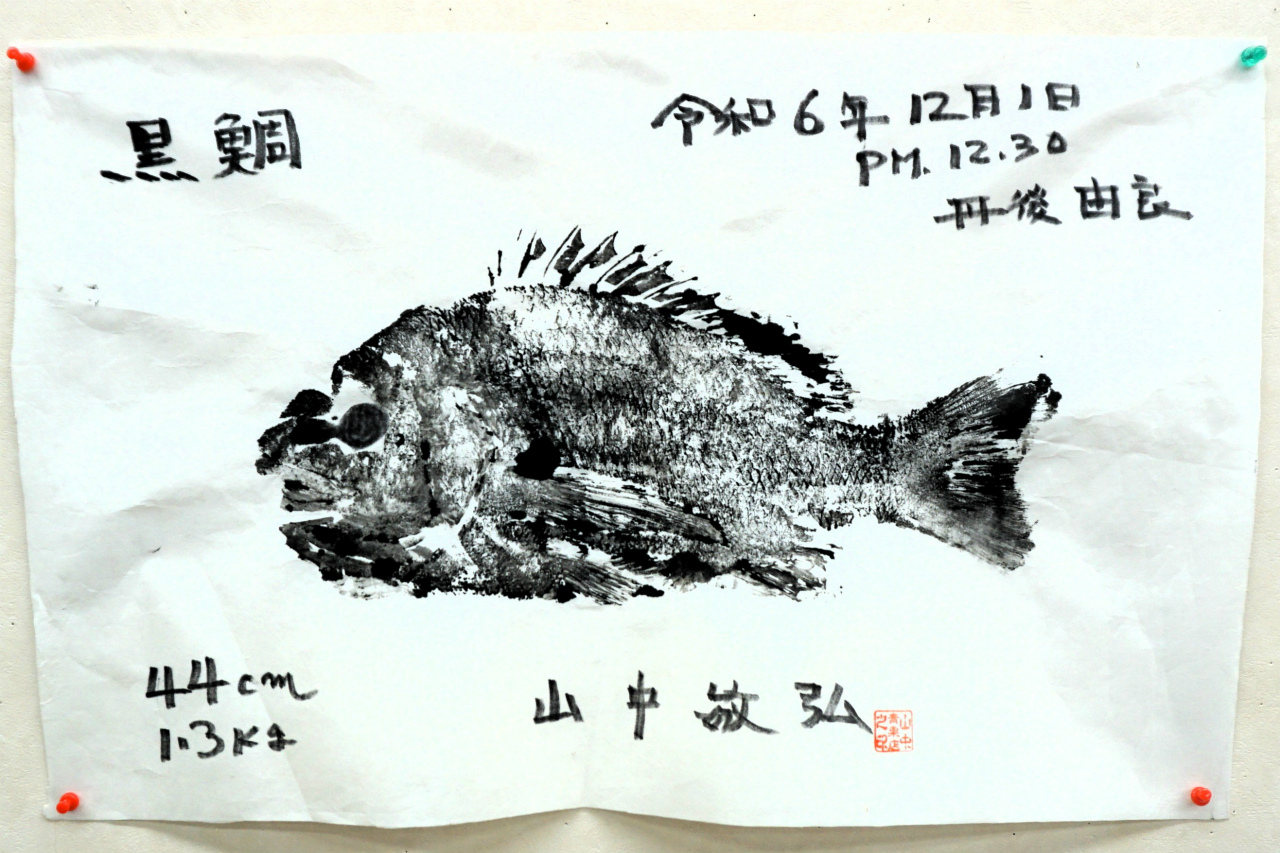 黒鯛
令和6年12月1日
PM.12.30
丹後由良
44cm
1.3Kg
山中敏弘